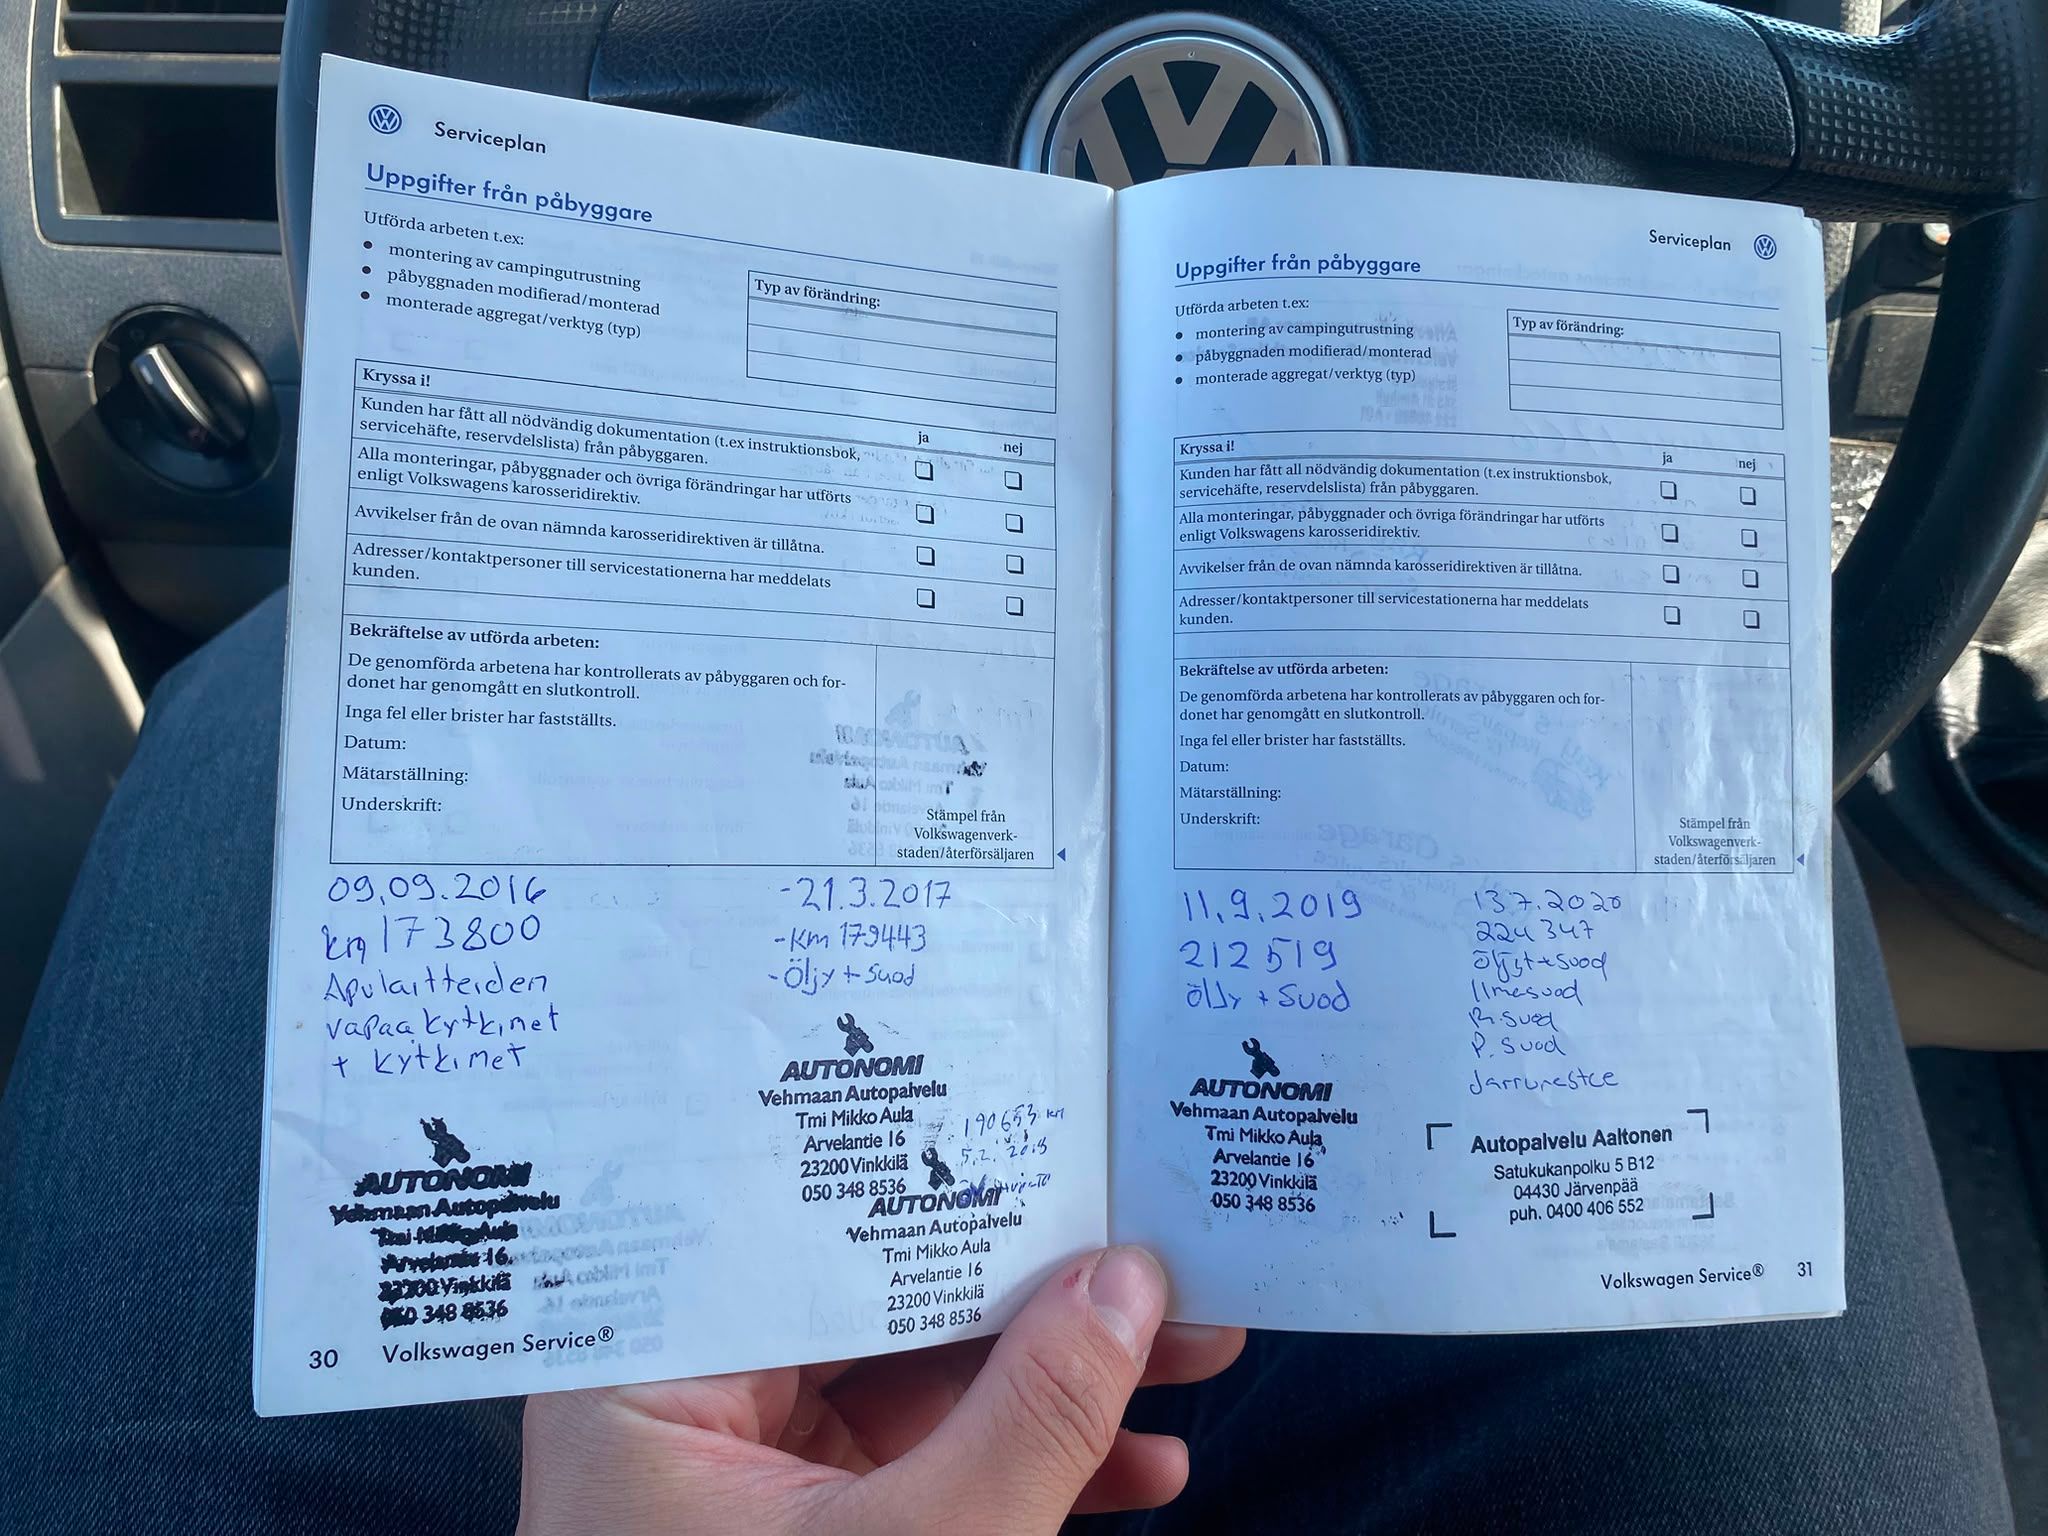 Serviceplan
Uppgifter från påbyggare
Utförda arbeten t.ex:
• montering av campingutrustning
• påbyggnaden modifierad/monterad
• monterade aggregat/verktyg (typ)
Typ av förändring:
Kryssa i!
ja nej
Kunden har fått all nödvändig dokumentation (t.ex instruktionsbok,
servicehäfte, reservdelslista) från påbyggaren.
Alla monteringar, påbyggnader och övriga förändringar har utförts
enligt Volkswagens karosseridirektiv.
Avvikelser från de ovan nämnda karosseridirektiven är tillåtna.
Adresser/kontaktpersoner till servicestationerna har meddelats
kunden.
Bekräftelse av utförda arbeten:
De genomförda arbetena har kontrollerats av påbyggaren och for-
donet har genomgått en slutkontroll.
Inga fel eller brister har fastställts.
Datum:
Mätarställning:
Underskrift:
Stämpel från
Volkswagenverk-
staden/återförsäljaren
09.09.2016
km 173800
Apulaitteiden
vapaa kytkimet
+ kytkimet
AUTONOMI
Vehmaan Autopalvelu
Tmi Mikko Aula
Arvelantie 16
23200 Vinkkilä
050 348 8536
-21.3.2017
-Km 179443
-Öljy + Suod
AUTONOMI
Vehmaan Autopalvelu
Tmi Mikko Aula
Arvelantie 16
23200 Vinkkilä
050 348 8536
190653 km
AUTONOMI
Vehmaan Autopalvelu
Tmi Mikko Aula
Arvelantie 16
23200 Vinkkilä
050 348 8536
30 Volkswagen Service®
Serviceplan
Uppgifter från påbyggare
Utförda arbeten t.ex:
• montering av campingutrustning
• påbyggnaden modifierad/monterad
• monterade aggregat/verktyg (typ)
Typ av förändring:
Kryssa i!
ja nej
Kunden har fått all nödvändig dokumentation (t.ex instruktionsbok,
servicehäfte, reservdelslista) från påbyggaren.
Alla monteringar, påbyggnader och övriga förändringar har utförts
enligt Volkswagens karosseridirektiv.
Avvikelser från de ovan nämnda karosseridirektiven är tillåtna.
Adresser/kontaktpersoner till servicestationerna har meddelats
kunden.
Bekräftelse av utförda arbeten:
De genomförda arbetena har kontrollerats av påbyggaren och for-
donet har genomgått en slutkontroll.
Inga fel eller brister har fastställts.
Datum:
Mätarställning:
Underskrift:
Stämpel från
Volkswagenverk-
staden/återförsäljaren
11.9.2019
212519
öljy + Suod
AUTONOMI
Vehmaan Autopalvelu
Tmi Mikko Aula
Arvelantie 16
23200 Vinkkilä
050 348 8536
13.7.2020
224347
öljyt+suod
Ilmasuod
R.suod
P.suod
Jarruneste
Autopalvelu Aaltonen
Satukukanpolku 5 B12
04430 Järvenpää
puh. 0400 406 552
Volkswagen Service® 31